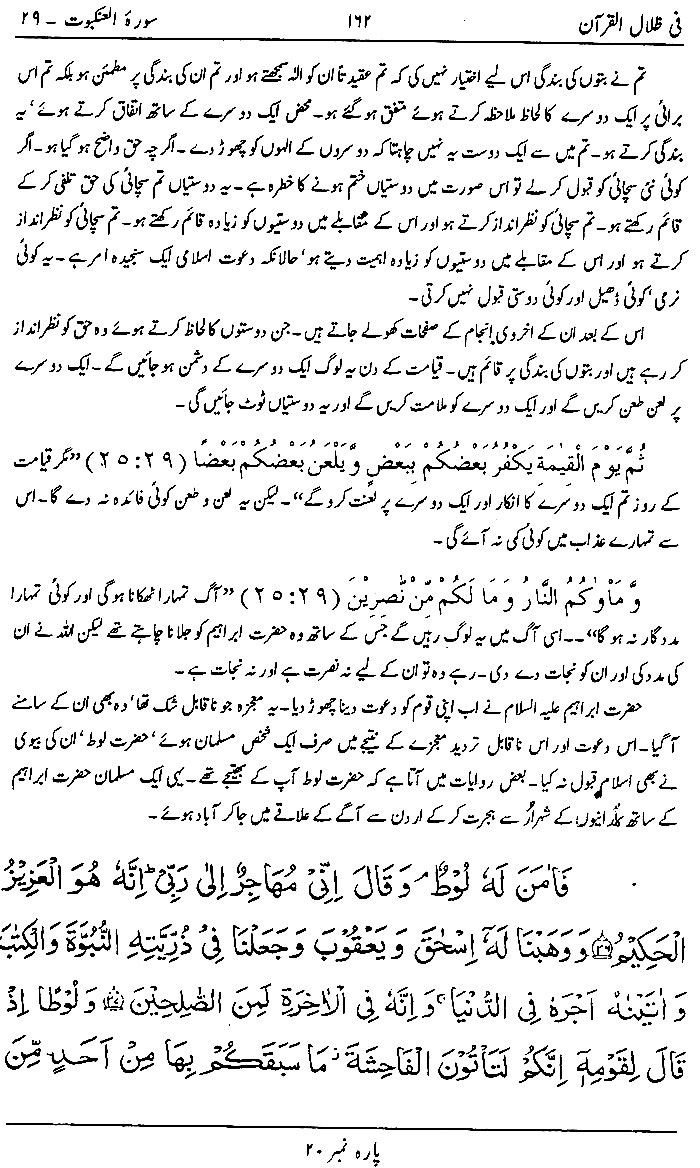 فی ظلال القرآن ۱۶۲ سورۂ العنکبوت - ۲۹
تم نے بتوں کی بندگی اس لیے اختیار نہیں کی کہ تم عقیدتاً ان کو الٰہ سمجھتے ہو اور تم ان کی بندگی پر مطمئن ہو بلکہ تم اس
برائی پر ایک دوسرے کا لحاظ ملاحظہ کرتے ہوئے متفق ہو گئے ہو۔ محض ایک دوسرے کے ساتھ اتفاق کرتے ہوئے‘ یہ
بندگی کرتے ہو۔ تم میں سے ایک دوست یہ نہیں چاہتا کہ دوسروں کے الٰہوں کو چھوڑ دے۔ اگرچہ حق واضح ہو گیا ہو۔ اگر
کوئی نئی سچائی کو قبول کر لے تو اس صورت میں دوستیاں ختم ہونے کا خطرہ ہے۔ یہ دوستیاں تم سچائی کی حق تلفی کر کے
قائم رکھتے ہو۔ تم سچائی کو نظرانداز کرتے ہو اور اس کے مقابلے میں دوستیوں کو زیادہ قائم رکھتے ہو۔ تم سچائی کو نظرانداز
کرتے ہو اور اس کے مقابلے میں دوستیوں کو زیادہ اہمیت دیتے ہو‘ حالانکہ دعوت اسلامی ایک سنجیدہ امر ہے۔ یہ کوئی
نرمی‘ کوئی ڈھیل اور کوئی دوستی قبول نہیں کرتی۔
اس کے بعد ان کے اخروی انجام کے صفحات کھولے جاتے ہیں۔ جن دوستوں کا لحاظ کرتے ہوئے وہ حق کو نظرانداز
کر رہے ہیں اور بتوں کی بندگی پر قائم ہیں۔ قیامت کے دن یہ لوگ ایک دوسرے کے دشمن ہو جائیں گے۔ ایک دوسرے
پر لعن طعن کریں گے اور ایک دوسرے کو ملامت کریں گے اور یہ دوستیاں ٹوٹ جائیں گی۔
ثُمَّ يَوْمَ الْقِيٰمَةِ يَكْفُرُ بَعْضُكُمْ بِبَعْضٍ وَّيَلْعَنُ بَعْضُكُمْ بَعْضًا (۲۹:۲۵) ”مگر قیامت
کے روز تم ایک دوسرے کا انکار اور ایک دوسرے پر لعنت کرو گے“۔ لیکن یہ لعن و طعن کوئی فائدہ نہ دے گا۔ اس
سے تمہارے عذاب میں کوئی کمی نہ آئے گی۔
وَّ مَاْوٰىكُمُ النَّارُ وَ مَا لَكُمْ مِّنْ نّٰصِرِيْنَ (۲۹:۲۵) ”آگ تمہارا ٹھکانا ہو گی اور کوئی تمہارا
مددگار نہ ہو گا“۔۔ اسی آگ میں یہ لوگ رہیں گے جس کے ساتھ وہ حضرت ابراہیم کو جلانا چاہتے تھے لیکن اللہ نے ان
کی مدد کی اور ان کو نجات دے دی۔ رہے وہ تو ان کے لیے نہ نصرت ہے اور نہ نجات ہے۔
حضرت ابراہیم علیہ السلام نے اب اپنی قوم کو دعوت دینا چھوڑ دیا۔ یہ معجزہ جو ناقابل شک تھا‘ وہ بھی ان کے سامنے
آ گیا۔ اس دعوت اور اس ناقابل تردید معجزے کے نتیجے میں صرف ایک شخص مسلمان ہوئے‘ حضرت لوط‘ ان کی بیوی
نے بھی اسلام قبول نہ کیا۔ بعض روایات میں آتا ہے کہ حضرت لوط آپ کے بھتیجے تھے۔ یہی ایک مسلمان حضرت ابراہیم
کے ساتھ کلدانیوں کے شہر اُر سے ہجرت کر کے اردن سے آگے کے علاقے میں جا کر آباد ہوئے۔
فَاٰمَنَ لَهٗ لُوْطٌ ۘ وَ قَالَ اِنِّيْ مُهَاجِرٌ اِلٰى رَبِّيْ ؕ اِنَّهٗ هُوَ الْعَزِيْزُ
الْحَكِيْمُ ﴿۲۶﴾ وَ وَهَبْنَا لَهٗٓ اِسْحٰقَ وَ يَعْقُوْبَ وَ جَعَلْنَا فِيْ ذُرِّيَّتِهِ النُّبُوَّةَ وَ الْكِتٰبَ
وَ اٰتَيْنٰهُ اَجْرَهٗ فِي الدُّنْيَا ۚ وَ اِنَّهٗ فِي الْاٰخِرَةِ لَمِنَ الصّٰلِحِيْنَ ﴿۲۷﴾ وَ لُوْطًا اِذْ
قَالَ لِقَوْمِهٖٓ اِنَّكُمْ لَتَاْتُوْنَ الْفَاحِشَةَ ؗ مَا سَبَقَكُمْ بِهَا مِنْ اَحَدٍ مِّنَ
پارہ نمبر ۲۰